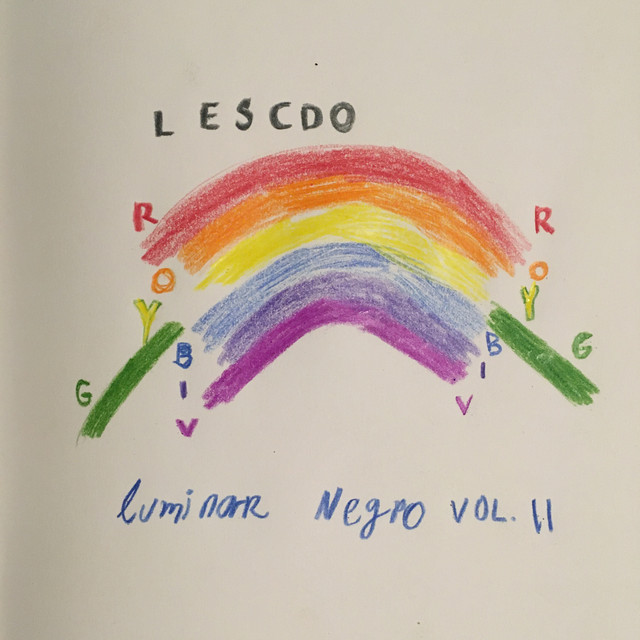 LESCDO
R R
O O
Y Y
G B B G
I I
V V
luminar Negro VOL. II